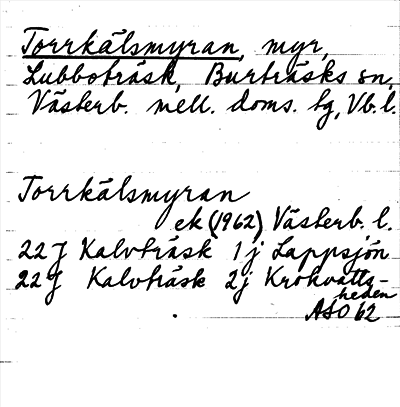 Torrkälsmyran, myr,
Lubboträsk, Burträsks sn,
Västerb. mell. doms. tg, Vb. l.
Torrkälsmyran
ek (1962) Västerb. l.
22 J Kalvträsk 1 j Lappsjön
22 J Kalvträsk 2 j Krokvatts-
heden
ASO 62